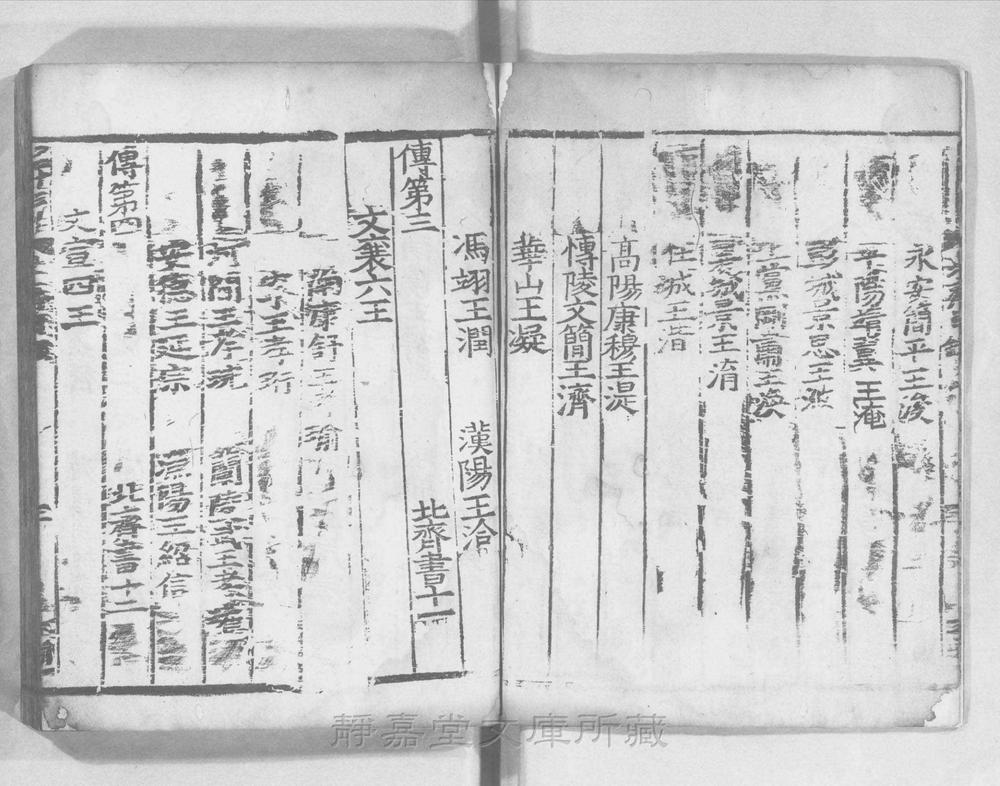 永安簡平王浚
平陽靖翼王淹
彭城景思王浟
上黨剛肅王渙
襄城景王淯
任城王湝
高陽康穆王湜
愽陵文簡王濟
華山王凝
馮翊王潤 漢陽王洽
傳第三 北齊書十一
文襄六王
河南康舒王孝瑜
王孝珩
河間王孝琬 蘭陵武王孝瓘
安德王延宗 漁陽王紹信
傳第四 北齊書十二
文宣四王
靜嘉堂文庫所藏